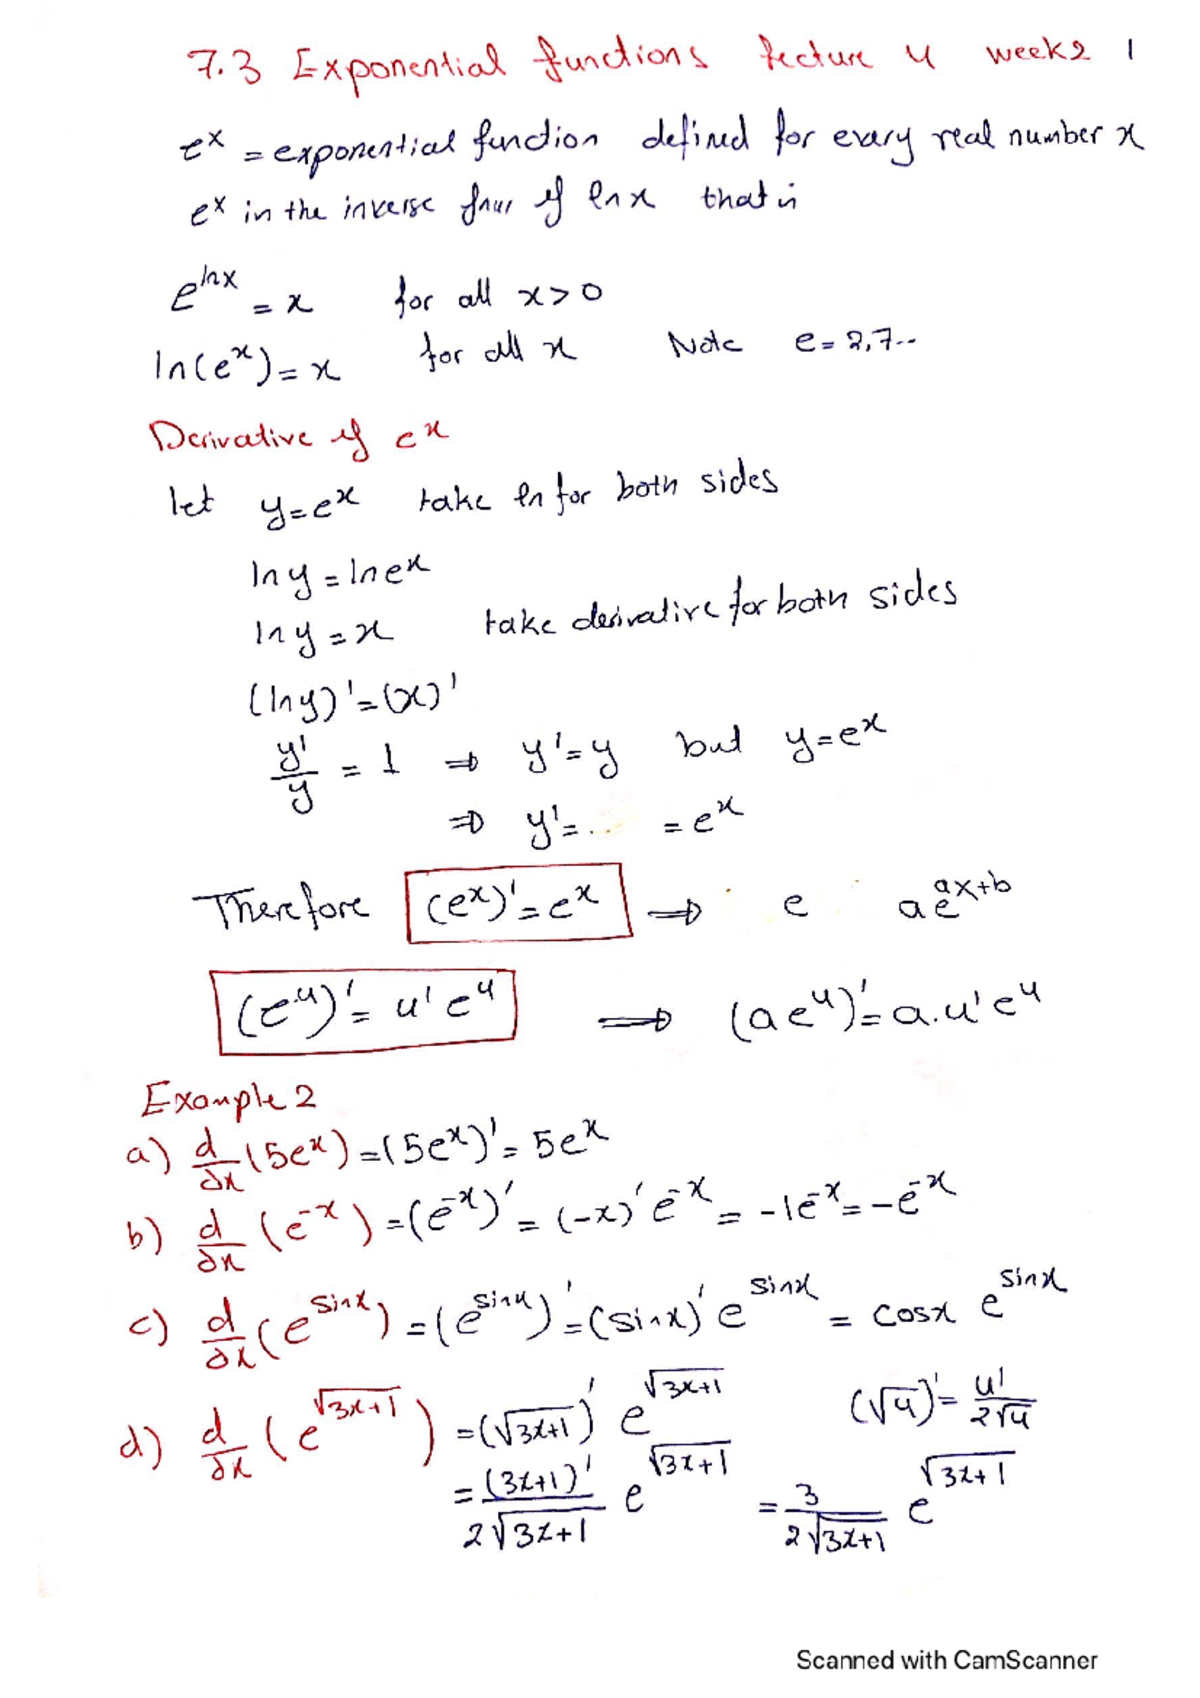 7.3 Exponential functions lecture 4 week2 1
e^x = exponential function defined for every real number x
e^x in the inverse of ln x that is
e^{lnx} = x for all x > 0
ln(e^x) = x for all x Note e = 2,7..
Derivative of e^x
let y = e^x take ln for both sides
ln y = ln e^x
ln y = x take derivative for both sides
(ln y)' = (x)'
y'/y = 1 ⇒ y' = y but y = e^x
⇒ y' = .. = e^x
Therefore (e^x)' = e^x ⇒ e a e^{ax+b}
(e^u)' = u' e^u ⇒ (a e^u)' = a.u' e^u
Example 2
a) d/dx (5e^x) = (5e^x)' = 5e^x
b) d/dx (e^{-x}) = (e^{-x})' = (-x)' e^{-x} = -1e^{-x} = -e^{-x}
c) d/dx (e^{sinx}) = (e^{sinx})' = (sinx)' e^{sinx} = cosx e^{sinx}
d) d/dx (e^{√(3x+1)}) = (√(3x+1))' e^{√(3x+1)} (√u)' = u'/(2√u)
= (3x+1)'/(2√(3x+1)) e^{√(3x+1)} = 3/(2√(3x+1)) e^{√(3x+1)}
Scanned with CamScanner